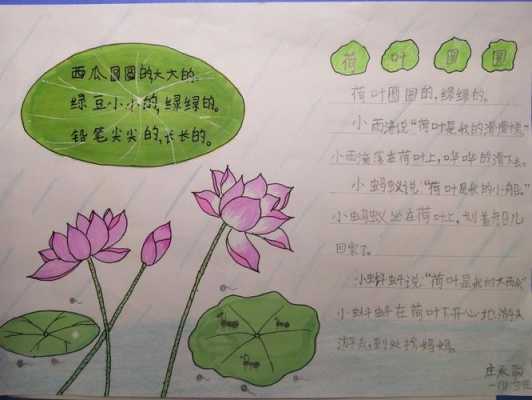 西瓜圆圆的,大大的。
绿豆小小的,绿绿的。
铅笔尖尖的,长长的。
荷叶圆圆
荷叶圆圆的,绿绿的。
小雨滴说“荷叶是我的滑滑梯”
小雨滴落在荷叶上,哗哗的滑下去。
小蚂蚁说“荷叶是我的小船。”
小蚂蚁坐在荷叶上,划着船儿
回家了。
小蝌蚪说“荷叶是我的大雨伞”
小蝌蚪在荷叶下开心地游来
游去,到处找妈妈。